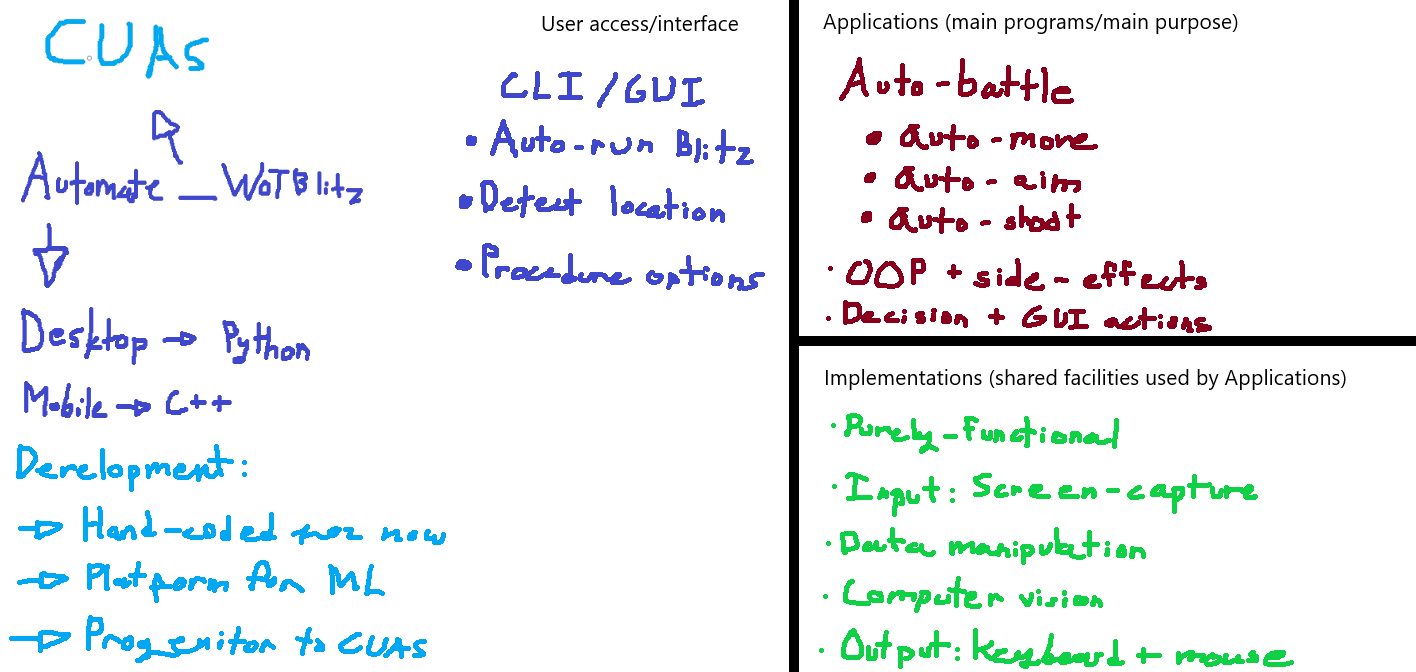 CUAS
Automate_WoTBlitz
Desktop → Python
Mobile → C++
Development:
→ Hand-coded for now
→ Platform for ML
→ Progenitor to CUAS
User access/interface
CLI/GUI
• Auto-run Blitz
• Detect location
• Procedure options
Applications (main programs/main purpose)
Auto-battle
• auto-move
• auto-aim
• auto-shoot
· OOP + side-effects
· Decision + GUI actions
Implementations (shared facilities used by Applications)
· Purely-functional
· Input: Screen-capture
· Data manipulation
· Computer vision
· Output: keyboard + mouse